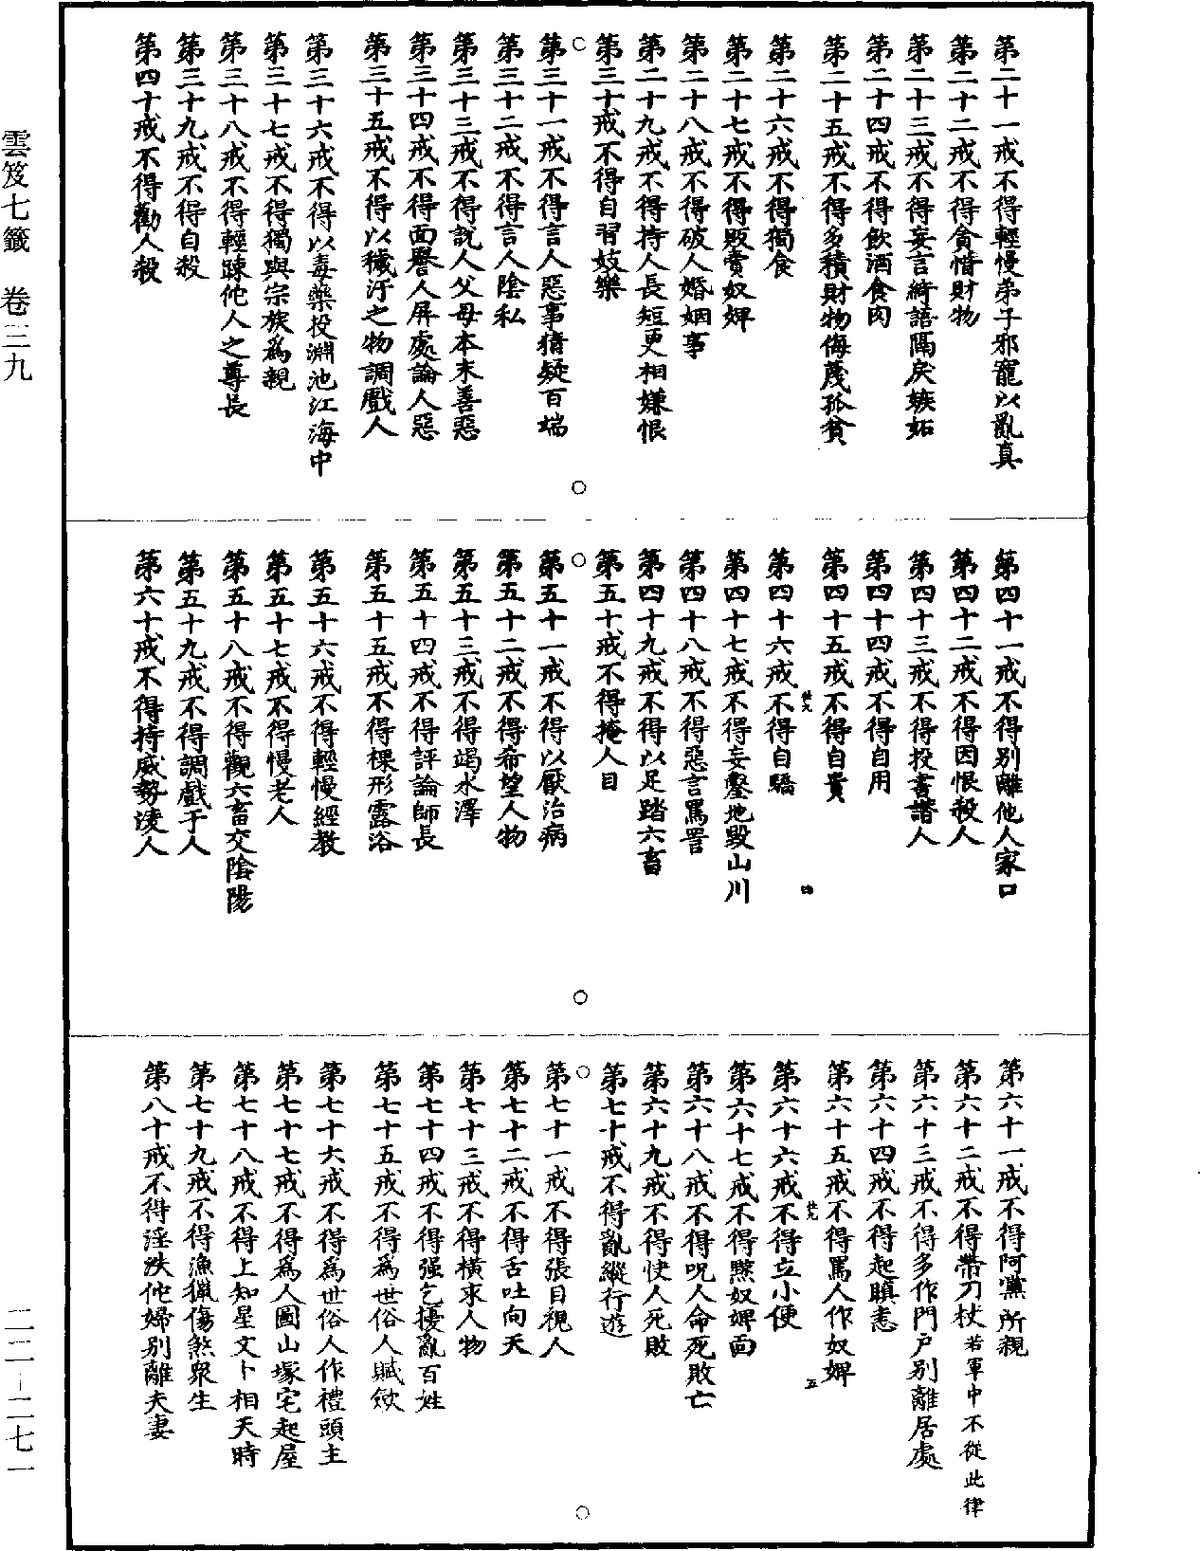 第二十一戒不得輕慢弟子邪寵以亂真
第二十二戒不得貪惜財物
第二十三戒不得妄言綺語隔戾嫉妬
第二十四戒不得飲酒食肉
第二十五戒不得多積財物侮蔑孤貧
第二十六戒不得獨食
第二十七戒不得販賣奴婢
第二十八戒不得破人婚姻事
第二十九戒不得持人長短更相嫌恨
第三十戒不得自習妓樂
第三十一戒不得言人惡事猜疑百端
第三十二戒不得言人陰私
第三十三戒不得說人父母本末善惡
第三十四戒不得面譽人屏處論人惡
第三十五戒不得以穢汙之物調戲人
第三十六戒不得以毒藥投淵池江海中
第三十七戒不得獨與宗族為親
第三十八戒不得輕踈他人之尊長
第三十九戒不得自殺
第四十戒不得勸人殺
第四十一戒不得別離他人家口
第四十二戒不得因恨殺人
第四十三戒不得投書譖人
第四十四戒不得自用
第四十五戒不得自貴
四
第四十六戒不得自驕
第四十七戒不得妄鑿地毀山川
第四十八戒不得惡言罵詈
第四十九戒不得以足踏六畜
第五十戒不得掩人目
第五十一戒不得以厭治病
第五十二戒不得希望人物
第五十三戒不得竭水澤
第五十四戒不得評論師長
第五十五戒不得裸形露浴
第五十六戒不得輕慢經教
第五十七戒不得慢老人
第五十八戒不得觀六畜交陰陽
第五十九戒不得調戲于人
第六十戒不得持威勢凌人
第六十一戒不得阿黨所親
第六十二戒不得帶刀杖若軍中不從此律
第六十三戒不得多作門戶別離居處
第六十四戒不得起瞋恚
第六十五戒不得罵人作奴婢
五
第六十六戒不得立小便
第六十七戒不得黥奴婢面
第六十八戒不得呪人命死敗亡
第六十九戒不得快人死敗
第七十戒不得亂縱行遊
第七十一戒不得張目視人
第七十二戒不得舌吐向天
第七十三戒不得橫求人物
第七十四戒不得强乞擾亂百姓
第七十五戒不得為世俗人賦歛
第七十六戒不得為世俗人作禮頭主
第七十七戒不得為人圖山塚宅起屋
第七十八戒不得上知星文卜相天時
第七十九戒不得漁獵傷煞眾生
第八十戒不得淫泆他婦別離夫妻
雲笈七籤 卷三九
二二—二七一